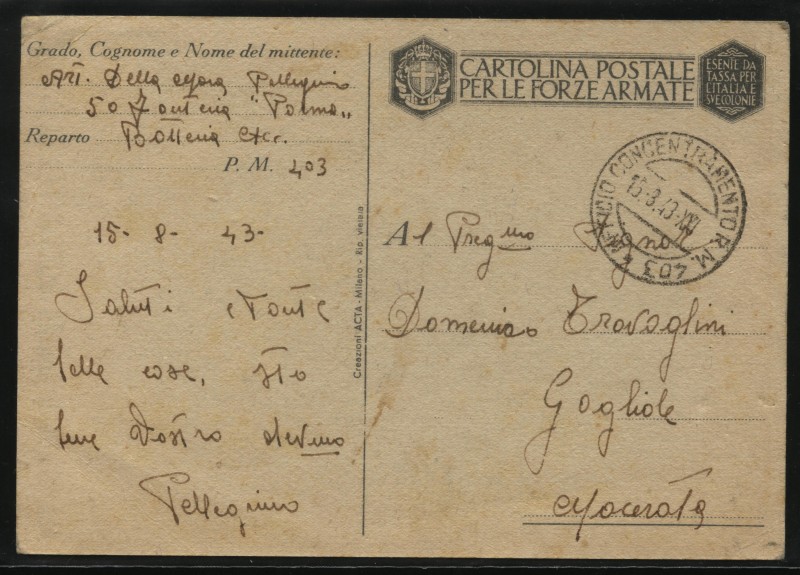 Grado, Cognome e Nome del mittente:
Art. Della Mora Pellegrino
50 Fanteria "Parma"
Reparto Batteria Acc.
P. M. 403
15 - 8 - 43 -
Saluti e tante
belle cose, sto
bene Vostro dev mo
Pellegrino
Creazioni ACTA - Milano - Rip. vietata
CARTOLINA POSTALE
PER LE FORZE ARMATE
ESENTE DA
TASSA PER
L'ITALIA E
SVE COLONIE
UFFICIO CONCENTRAMENTO P.M. 403
15.8.43-XXI
Al Preg mo Signor
Domenico Travaglini
Gagliole
Macerata